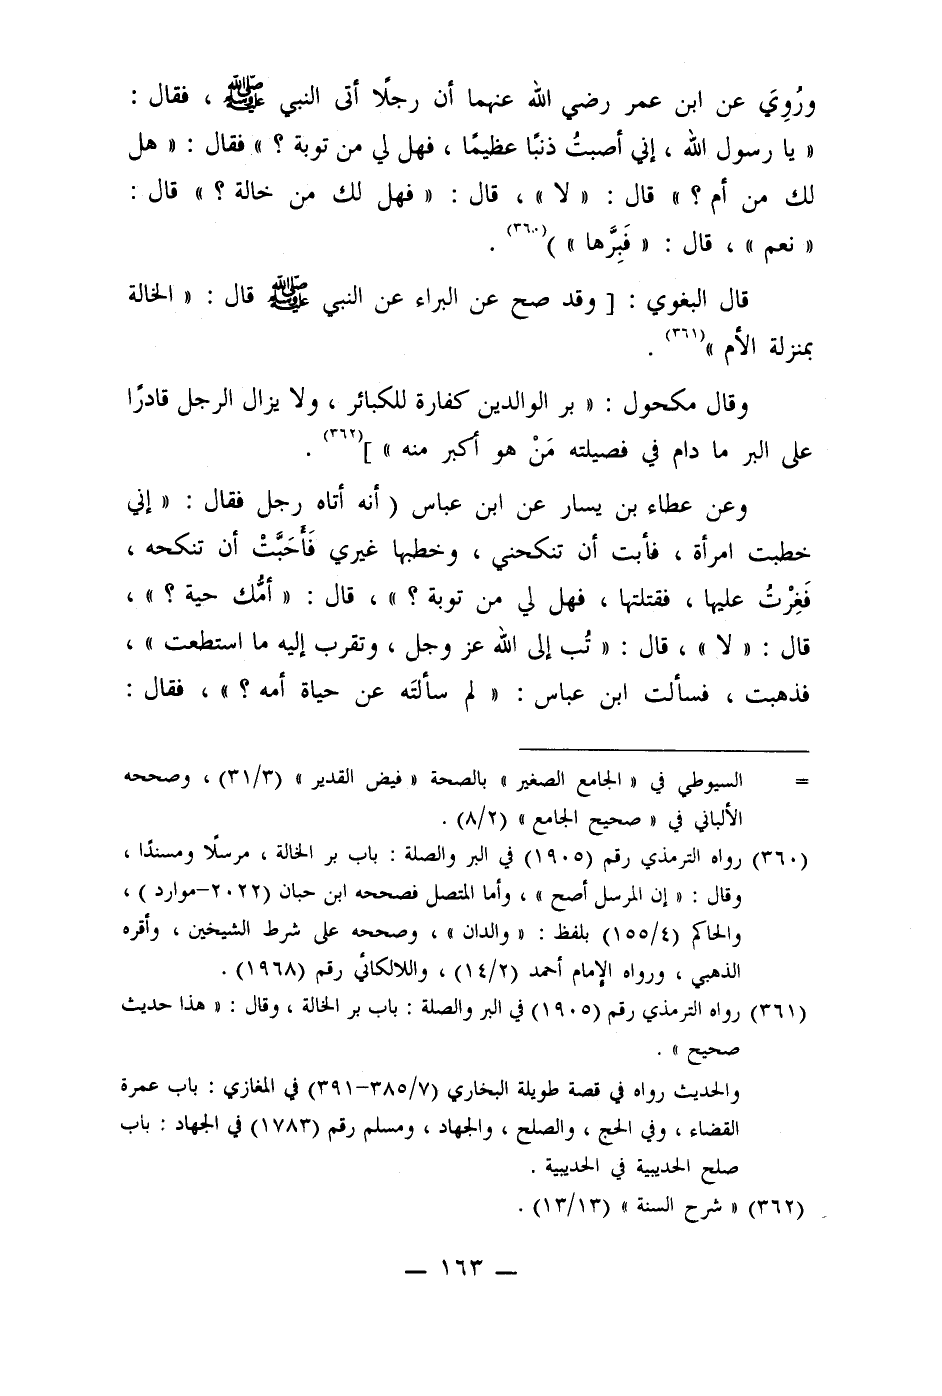 ورُوِيَ عن ابن عمر رضي الله عنهما أن رجلًا أتى النبي ﷺ ، فقال :
« يا رسول الله ، إني أصبتُ ذنبًا عظيمًا ، فهل لي من توبة ؟ » فقال : « هل
لك من أم ؟ » قال : « لا » ، قال : « فهل لك من خالة ؟ » قال :
« نعم » ، قال : « فَبِرَّها » )(٣٦٠) .
قال البغوي : [ وقد صح عن البراء عن النبي ﷺ قال : « الخالة
بمنزلة الأم »(٣٦١) .
وقال مكحول : « بر الوالدين كفارة للكبائر ، ولا يزال الرجل قادرًا
على البر ما دام في فصيلته مَنْ هو أكبر منه » ](٣٦٢) .
وعن عطاء بن يسار عن ابن عباس ( أنه أتاه رجل فقال : « إني
خطبت امرأة ، فأبت أن تنكحني ، وخطبها غيري فَأَحَبَّتْ أن تنكحه ،
فَغِرْتُ عليها ، فقتلتها ، فهل لي من توبة ؟ » ، قال : « أمُّك حية ؟ » ،
قال : « لا » ، قال : « تُب إلى الله عز وجل ، وتقرب إليه ما استطعت » ،
فذهبت ، فسألت ابن عباس : « لم سألتَه عن حياة أمه ؟ » ، فقال :
= السيوطي في « الجامع الصغير » بالصحة « فيض القدير » (٣١/٣) ، وصححه
الألباني في « صحيح الجامع » (٨/٢) .
(٣٦٠) رواه الترمذي رقم (١٩٠٥) في البر والصلة : باب بر الخالة ، مرسلًا ومسندًا ،
وقال : « إن المرسل أصح » ، وأما المتصل فصححه ابن حبان (٢٠٢٢-موارد ) ،
والحاكم (١٥٥/٤) بلفظ : « والدان » ، وصححه على شرط الشيخين ، وأقره
الذهبي ، ورواه الإمام أحمد (١٤/٢) ، واللالكائي رقم (١٩٦٨) .
(٣٦١) رواه الترمذي رقم (١٩٠٥) في البر والصلة : باب بر الخالة ، وقال : « هذا حديث
صحيح » .
والحديث رواه في قصة طويلة البخاري (٣٨٥/٧-٣٩١) في المغازي : باب عمرة
القضاء ، وفي الحج ، والصلح ، والجهاد ، ومسلم رقم (١٧٨٣) في الجهاد : باب
صلح الحديبية في الحديبية .
(٣٦٢) « شرح السنة » (١٣/١٣) .
— ١٦٣ —